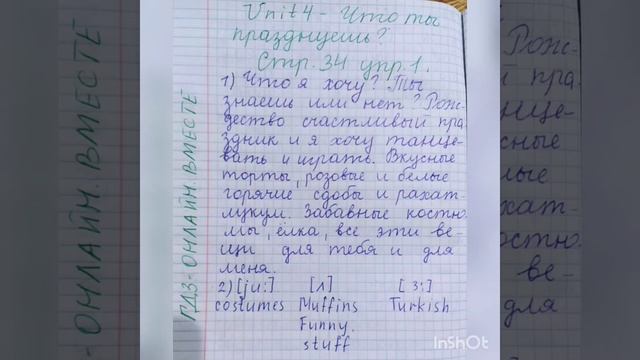 Unit 4 - Что ты
празднуешь?
Стр. 34 упр. 1.
1) Что я хочу? Ты
знаешь или нет? Рож-
дество счастливый пра
здник и я хочу танце-
вать и играть. Вкусные
торты, розовые и белые
горячие сдобы и рахат-
лукум. Забавные костю
мы, ёлка, все эти ве-
щи для тебя и для
меня.
2) [ju:] [ʌ] [ɜ:]
costumes Muffins Turkish
Funny.
stuff
ГДЗ-ОНЛАЙН. ВМЕСТЕ
InShOt